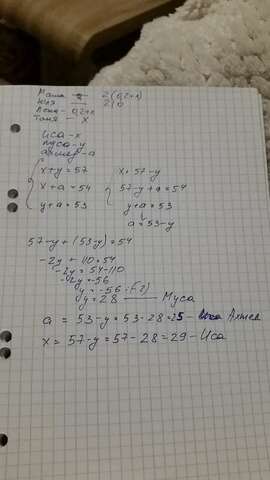 Маша — 2(0,2+x)
Юля — 210
Лена - 0,2+x
Таня — x
Иса - x
Муса - y
Ахмед - a
x+y = 57
x + a = 54
y + a = 53
x + 57 - y
57 - y + a = 54
y + a = 53
a = 53 - y
57 - y + (53 - y) = 54
-2y + 110 = 54
-2y = 54 - 110
-2y = -56
y = -56 : (-2)
y = 28 — Муса
a = 53 - y = 53 - 28 = 25 - Ахмед
x = 57 - y = 57 - 28 = 29 - Иса